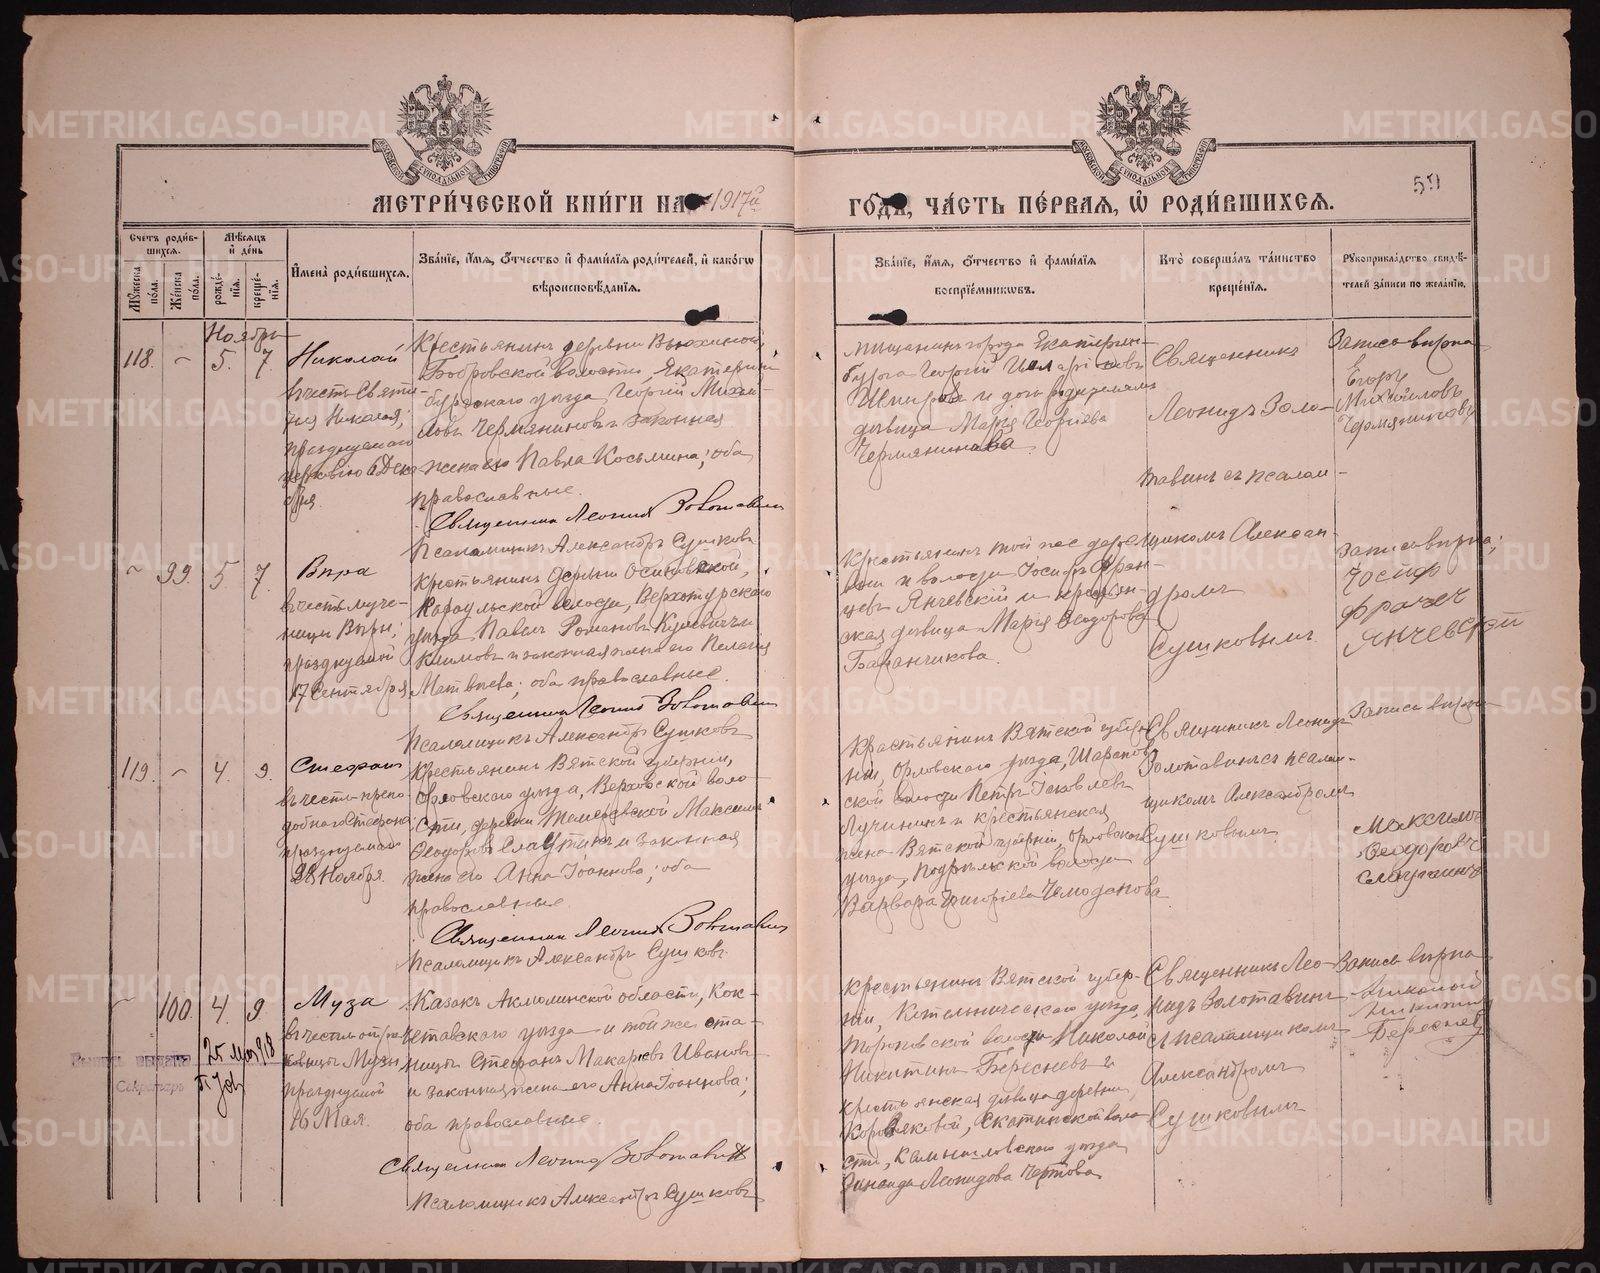 МЕТРИ́ЧЕСКОЙ КНИ́ГИ НА 1917й
ГО́ДЪ, ЧА́СТЬ ПЕ́РВАЯ, Ѽ РОДИ́ВШИХСѦ.
59
Счетъ роди́вшихсѧ.
Мꙋ́жеска по́ла.
Же́нска по́ла.
Мѣ́сѧцъ и҆ де́нь
рожде́нїѧ.
креще́нїѧ.
И҆мена̀ роди́вшихсѧ.
Зва́нїе, и҆́мѧ, ѻ҆́тчество и҆ фами́лїѧ роди́телей, и҆ како́гѡ
вѣроисповѣ́данїѧ.
Зва́нїе, и҆́мѧ, ѻ҆́тчество и҆ фами́лїѧ
воспрїе́мникѡвъ.
Кто̀ соверша́лъ та́инство
креще́нїѧ.
Рꙋкоприкла́дство свидѣ́-
телей за́писи по жела́нїю.
Ноябрь
118. – 5. 7.
Николай
въ честь Святи-
теля Николая,
празднуемаго
церковію 6 Дека-
бря.
Крестьянинъ деревни Вьюхиной,
Бобровской волости, Екатерин-
бургскаго уѣзда Георгій Михаи-
ловъ Чермяниновъ и законная
жена его Павла Косьмина; оба
православные.
Священникъ Леонидъ Золотавинъ
Псаломщикъ Александръ Сушковъ
Мѣщанинъ города Екатерин-
бурга Георгій
и дочь
дѣвица Марія Георгіева
Чермянинова.
Священникъ
Леонидъ Золо-
тавинъ съ псалом-
щикомъ Алексан-
дромъ
Сушковымъ.
Запись вѣрна
Егоръ
Михайловъ
Чермяниновъ
– 99. 5 7.
Вѣра
въ честь муче-
ницы Вѣры,
празднуемой
17 Сентября.
Крестьянинъ деревни
Караульской волости, Верхотурскаго
уѣзда Павелъ Романовъ
Климовъ и законная жена его Пелагія
Матвѣева; оба православные.
Священникъ Леонидъ Золотавинъ
Псаломщикъ Александръ Сушковъ
Крестьянинъ той же дерев-
ни и волости Іосифъ Фран-
цевъ Янчевскій и крестьян-
ская дѣвица Марія Ѳеодорова
Баранчикова.
Запись вѣрна;
Іосиф
Францев
Янчевский
119. – 4. 9.
Стефанъ
въ честь препо-
добнаго Стефана
празднуемаго
28 Ноября.
Крестьянинъ Вятской губерніи,
Орловскаго уѣзда, Верховской воло-
сти, деревни Максимъ
Ѳеодоровъ Слаутинъ и законная
жена его Анна Іоаннова; оба
православные.
Священникъ Леонидъ Золотавинъ
Псаломщикъ Александръ Сушковъ
Крестьянинъ Вятской губер-
ніи, Орловскаго уѣзда,
ской волости Петръ Іаковлевъ
Лучининъ и крестьянская
жена Вятской губерніи, Орловскаго
уѣзда, Подрѣльской волости
Варвара Григоріева Чемоданова
Священникъ Леонидъ
Золотавинъ съ псалом-
щикомъ Александромъ
Сушковымъ.
Запись вѣрна
Максимъ
Ѳеодоровъ
Слаутинъ
– 100. 4. 9.
Муза
въ честь отро-
ковицы Музы
празднуемой
16 Мая.
25 1918
Секретарь
Казакъ Акмолинской области, Кок-
четавскаго уѣзда и той же ста-
ницы Стефанъ Макаріевъ Ивановъ
и законная жена его Анна Іоаннова;
оба православные.
Священникъ Леонидъ Золотавинъ
Псаломщикъ Александръ Сушковъ
Крестьянинъ Вятской губер-
ніи, Котельническаго уѣзда,
волости Николай
Никитинъ Бересневъ и
крестьянская дѣвица деревни
Коровяковой, Скатинской воло-
сти, Камышловскаго уѣзда
Зинаида Леонидова Чертова
Священникъ Лео-
нидъ Золотавинъ
съ псаломщикомъ
Александромъ
Сушковымъ
Запись вѣрна
Николай
Никитинъ
Бересневъ
METRIKI.GASO-URAL.RU